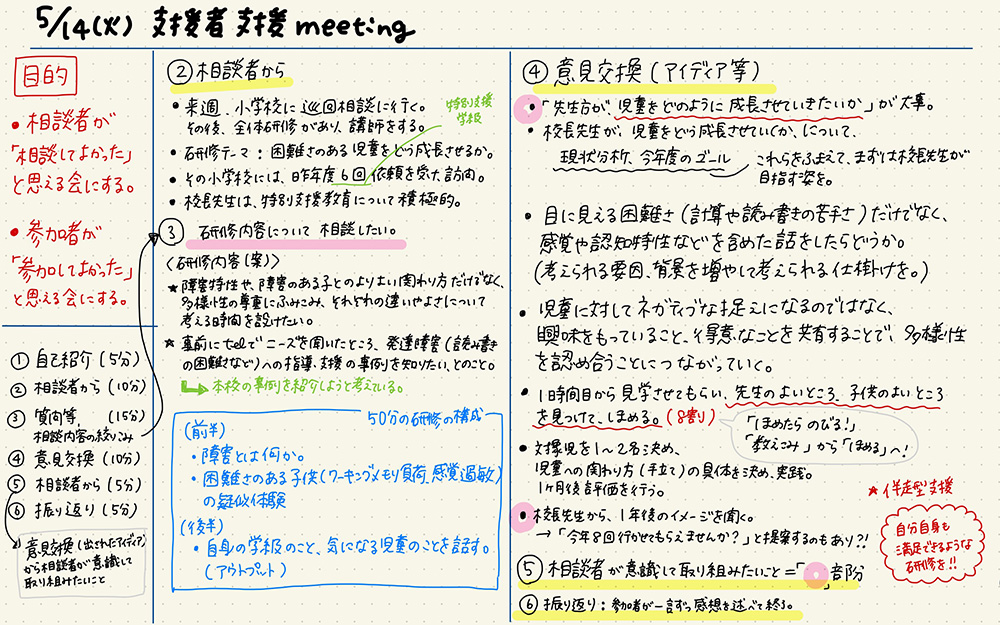 5/14(火) 支援者支援 meeting
目的
• 相談者が
「相談してよかった」
と思える会にする。
• 参加者が
「参加してよかった」
と思える会にする。
① 自己紹介 (5分)
② 相談者から (10分)
③ 質問等、 (15分)
相談内容の絞りこみ
④ 意見交換 (10分)
⑤ 相談者から (5分)
⑥ 振り返り (5分)
意見交換 (出されたアイディア)
から相談者が意識して
取り組みたいこと
② 相談者から
• 来週、小学校に巡回相談に行く。
その後、全体研修があり、講師をする。
特別支援
学級
• 研修テーマ：困難さのある児童をどう成長させるか。
• その小学校には、昨年度6回依頼を受た訪問。
• 校長先生は、特別支援教育について積極的。
③ 研修内容について相談したい。
〈研修内容(案)〉
★障害特性や、障害のある子とのよりよい関わり方だけでなく、
多様性の尊重にふみこみ、それぞれの違いやよさについて
考える時間を設けたい。
★事前にtelでニーズを聞いたところ、発達障害(読み書き
の困難さなど)への指導、支援の事例を知りたい、とのこと。
→本校の事例を紹介しようと考えている。
50分の研修の構成
(前半)
・障害とは何か。
・困難さのある子供(ワーキングメモリ負荷、感覚過敏)
の疑似体験
(後半)
・自身の学級のこと、気になる児童のことを話す。
(アウトプット)
④ 意見交換 (アイディア等)
•「先生方が、児童をどのように成長させていきたいか」が大事。
• 校長先生が、児童をどう成長させていくか、について、
現状分析、今年度のゴール
これらをふまえて、まずは校長先生が
目指す姿を。
• 目に見える困難さ (計算や読み書きの苦手さ) だけでなく、
感覚や認知特性などを含めた話をしたらどうか。
(考えられる要因、背景を増やして考えられる仕掛けを。)
• 児童に対してネガティブな捉えになるのではなく、
興味をもっていること、得意なことを共有することで、多様性
を認め合うことにつながっていく。
• 1時間目から見学させてもらい、先生のよいところ、子供のよいところ
を見つけて、ほめる。(8割)
「ほめたらのびる！」
「教えこみ」から「ほめる」へ！
• 対象児を1〜2名決め、
児童への関わり方 (手立て) の具体を決め、実践。
1ヶ月後評価を行う。
• 校長先生から、1年後のイメージを聞く。
→「今年8回行かせてもらえませんか？」と提案するのもあり?!
★ 伴走型支援
自分自身も
満足できるような
研修を!!
⑤ 相談者が意識して取り組みたいこと＝「 」部分
⑥ 振り返り：参加者が一言ずつ感想を述べて終る。